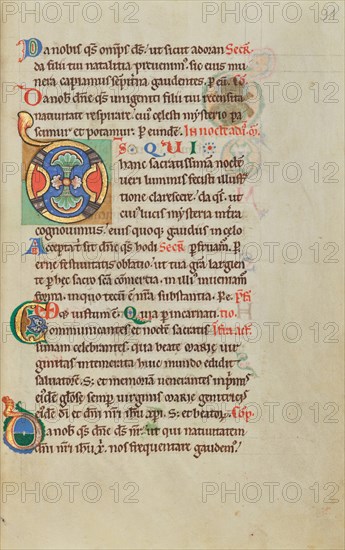 91
Da nobis qs omps ds. ut sicut adoran Secr.
da filii tui natalitia prevenim. sic eius mu
nera capiamus sempitna gaudentes. P. cu. Co
Da nob dne qs unigeniti filii tui recensita
nativitate respirare. cui celesti mysterio pa
scimur et potamur. P. eundem. In nocte ad
DS QUI
hanc sacratissimā noctē
veri luminis fecisti illustra
tione clarescere. da qs. ut
cui lucis mysteria in tra
cognovimus. eius quoq; gaudiis in celo
Accepta t sit dne qs hodi Secr. pfruam. P.
erne festivitatis oblatio. ut tua gra largien
te p hec sacro sca cōmertia. in illi inveniam
forma. in quo tecū ē nrā substantia. Pe. Pf.
Eqq iustum ē. Quia p incarnati
Communicantes et noctē sacratis
simam celebrantes. qua beate MARIE vir
ginitas intemerata huic mundo edidit
salvatorē. S; et memoriā venerantes in pmis
eidē gliose semp virginis MARIE genitricis
eidē di et dni nri ihu xpi. S; et beator. Cōp.
Da qs dne ds nr. ut qui nativitatem
dni nri ihu x. nos frequentare gaudem.
PHOTO 12